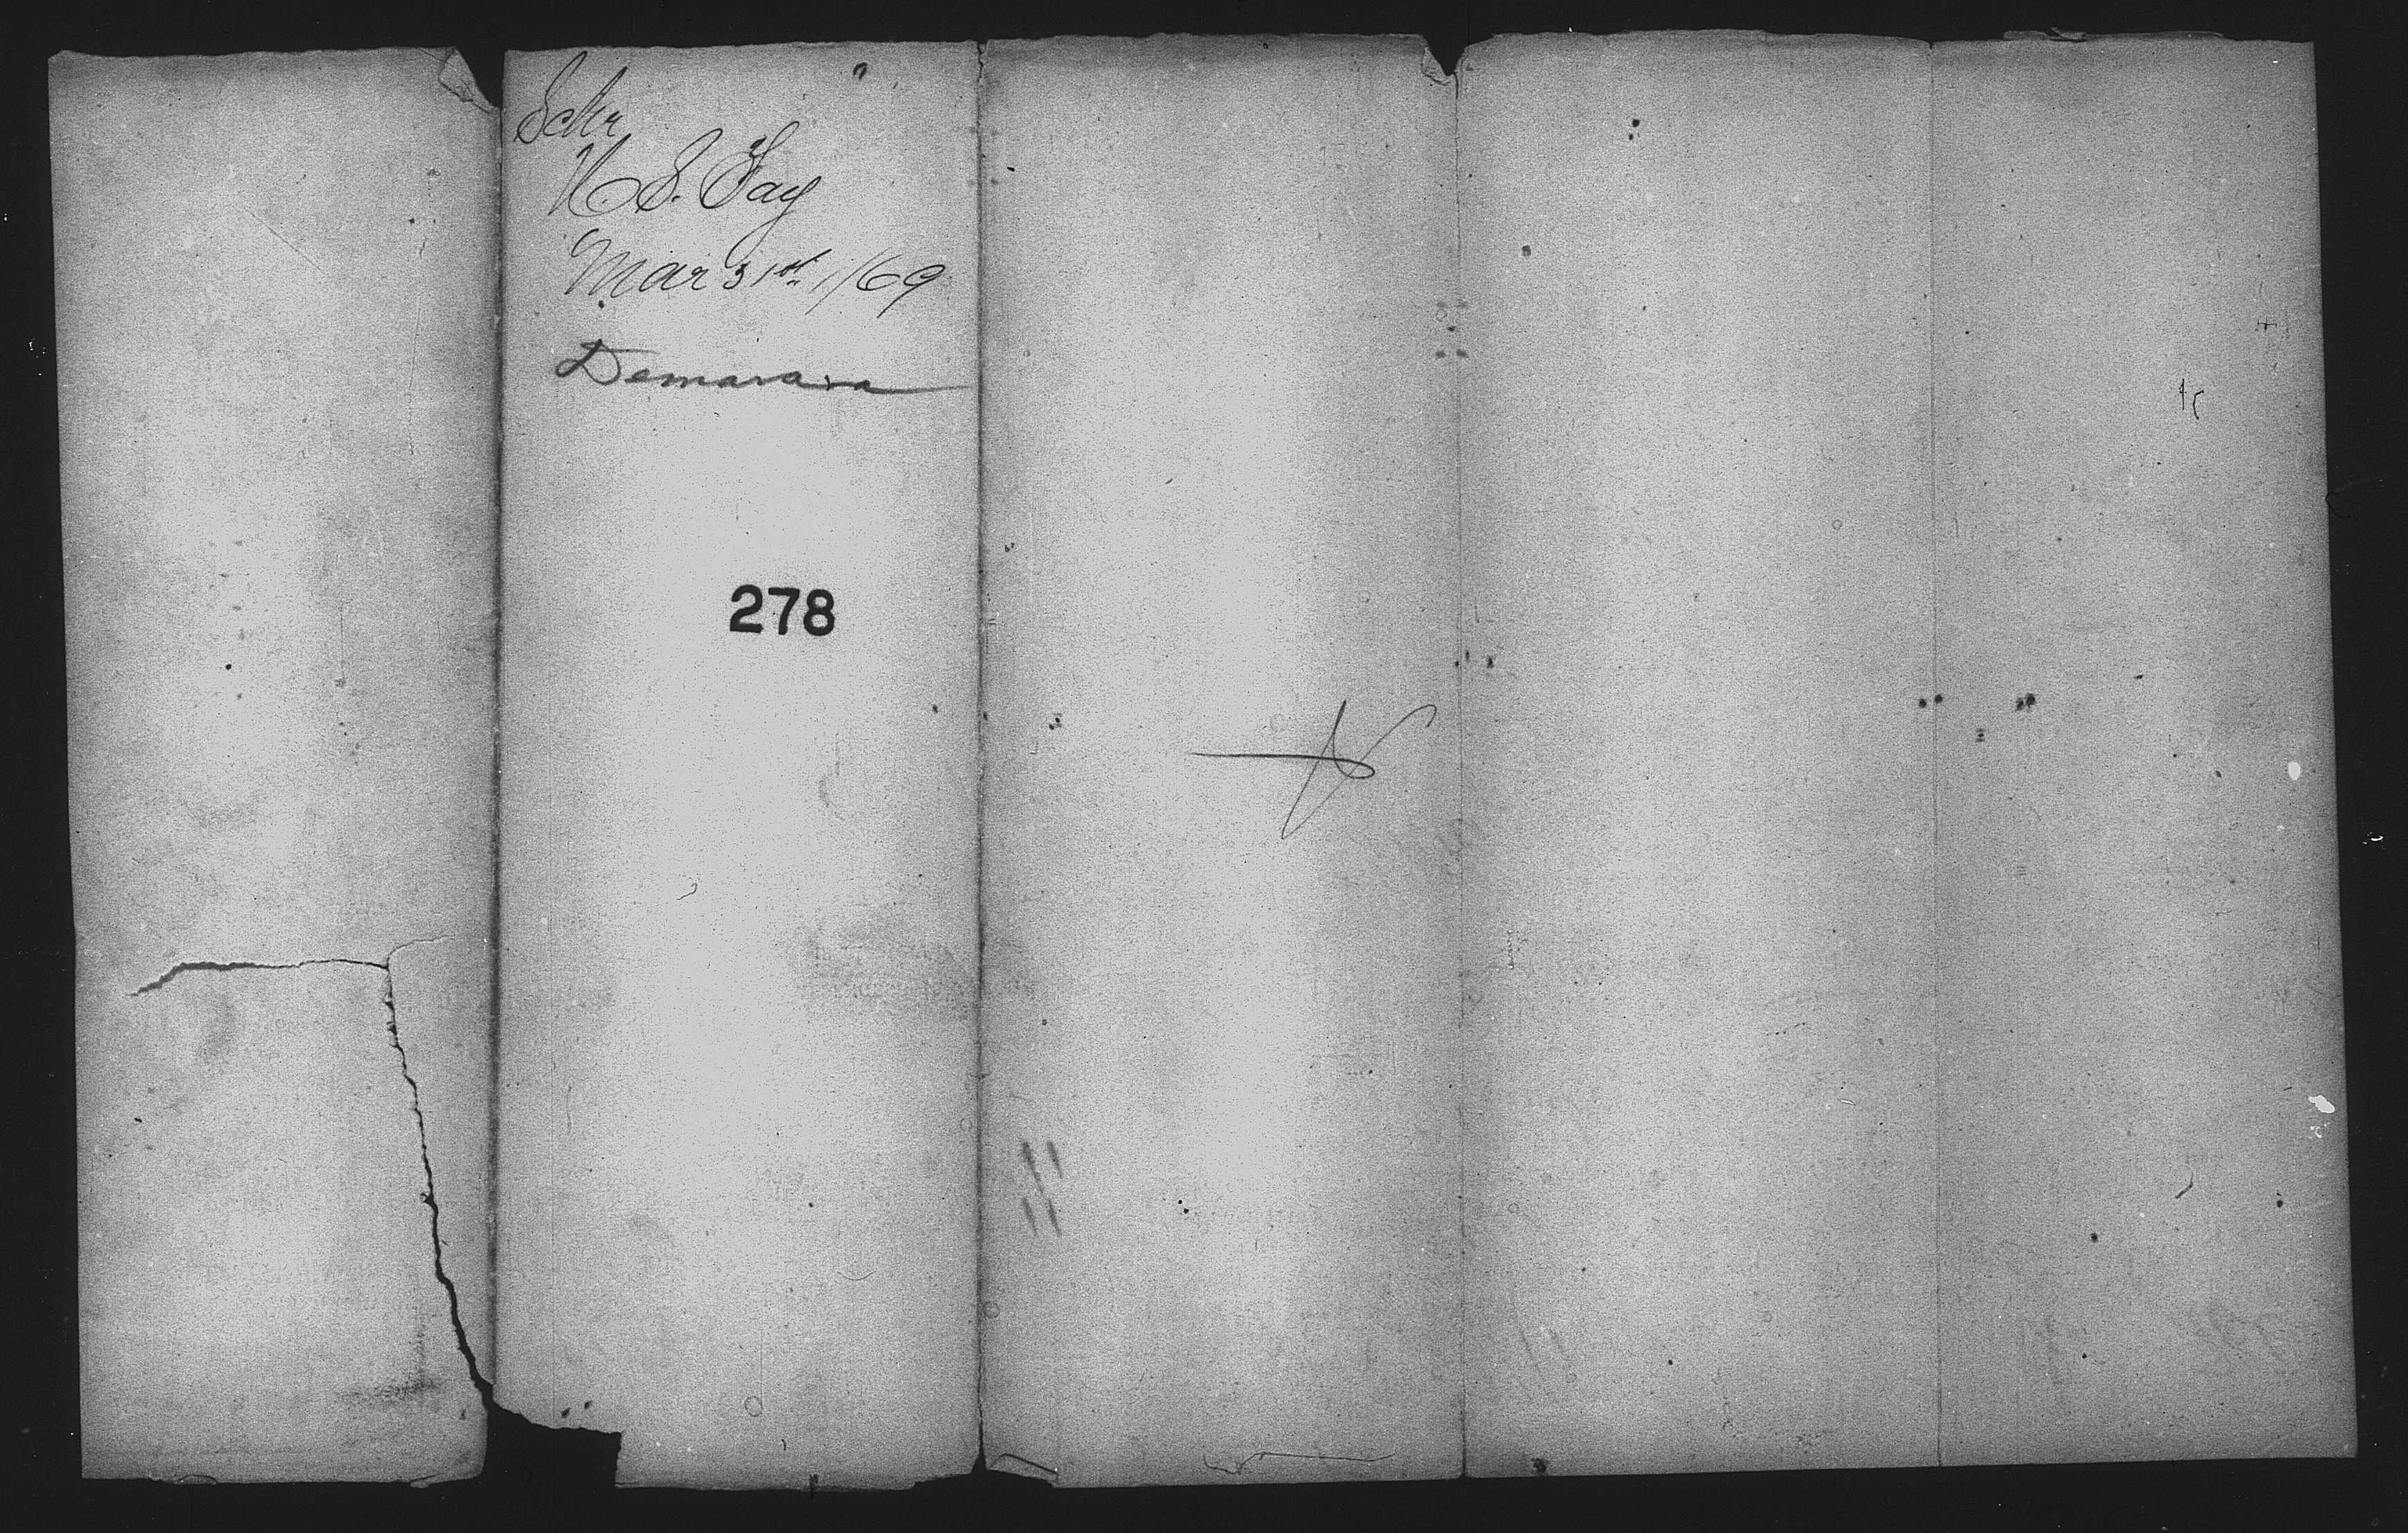 Schr
H S. Fay
Mar 31st /69
Demarara
278